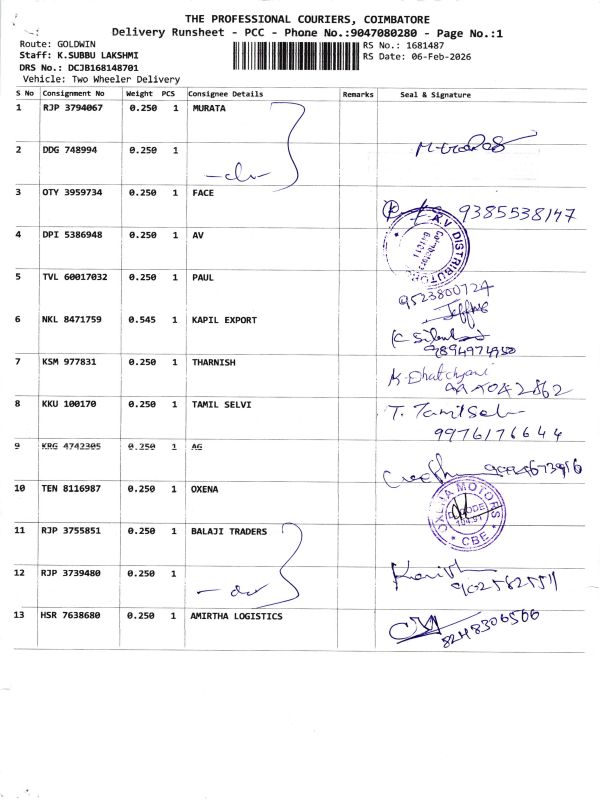 THE PROFESSIONAL COURIERS, COIMBATORE
Delivery Runsheet - PCC - Phone No.:9047080280 - Page No.:1
Route: GOLDWIN
RS No.: 1681487
Staff: K.SUBBU LAKSHMI
RS Date: 06-Feb-2026
DRS No.: DCJB168148701
Vehicle: Two Wheeler Delivery
S No Consignment No Weight PCS Consignee Details Remarks Seal & Signature
1 RJP 3794067 0.250 1 MURATA
2 DDG 748994 0.250 1
3 OTY 3959734 0.250 1 FACE
9385538147
4 DPI 5386948 0.250 1 AV
A.V DISTRIBUTOR
5 TVL 60017032 0.250 1 PAUL
9523800724
6 NKL 8471759 0.545 1 KAPIL EXPORT
9894974950
7 KSM 977831 0.250 1 THARNISH
8 KKU 100170 0.250 1 TAMIL SELVI
T. Tamil Selvi
9976176644
9 KRG 4742305 0.250 1 AG
10 TEN 8116987 0.250 1 OXENA
OXENA MOTORS
CBE
11 RJP 3755851 0.250 1 BALAJI TRADERS
12 RJP 3739480 0.250 1
13 HSR 7638680 0.250 1 AMIRTHA LOGISTICS
8248306506